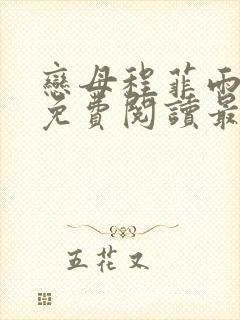 戀母程菲雨
免費閱讀最
五花又